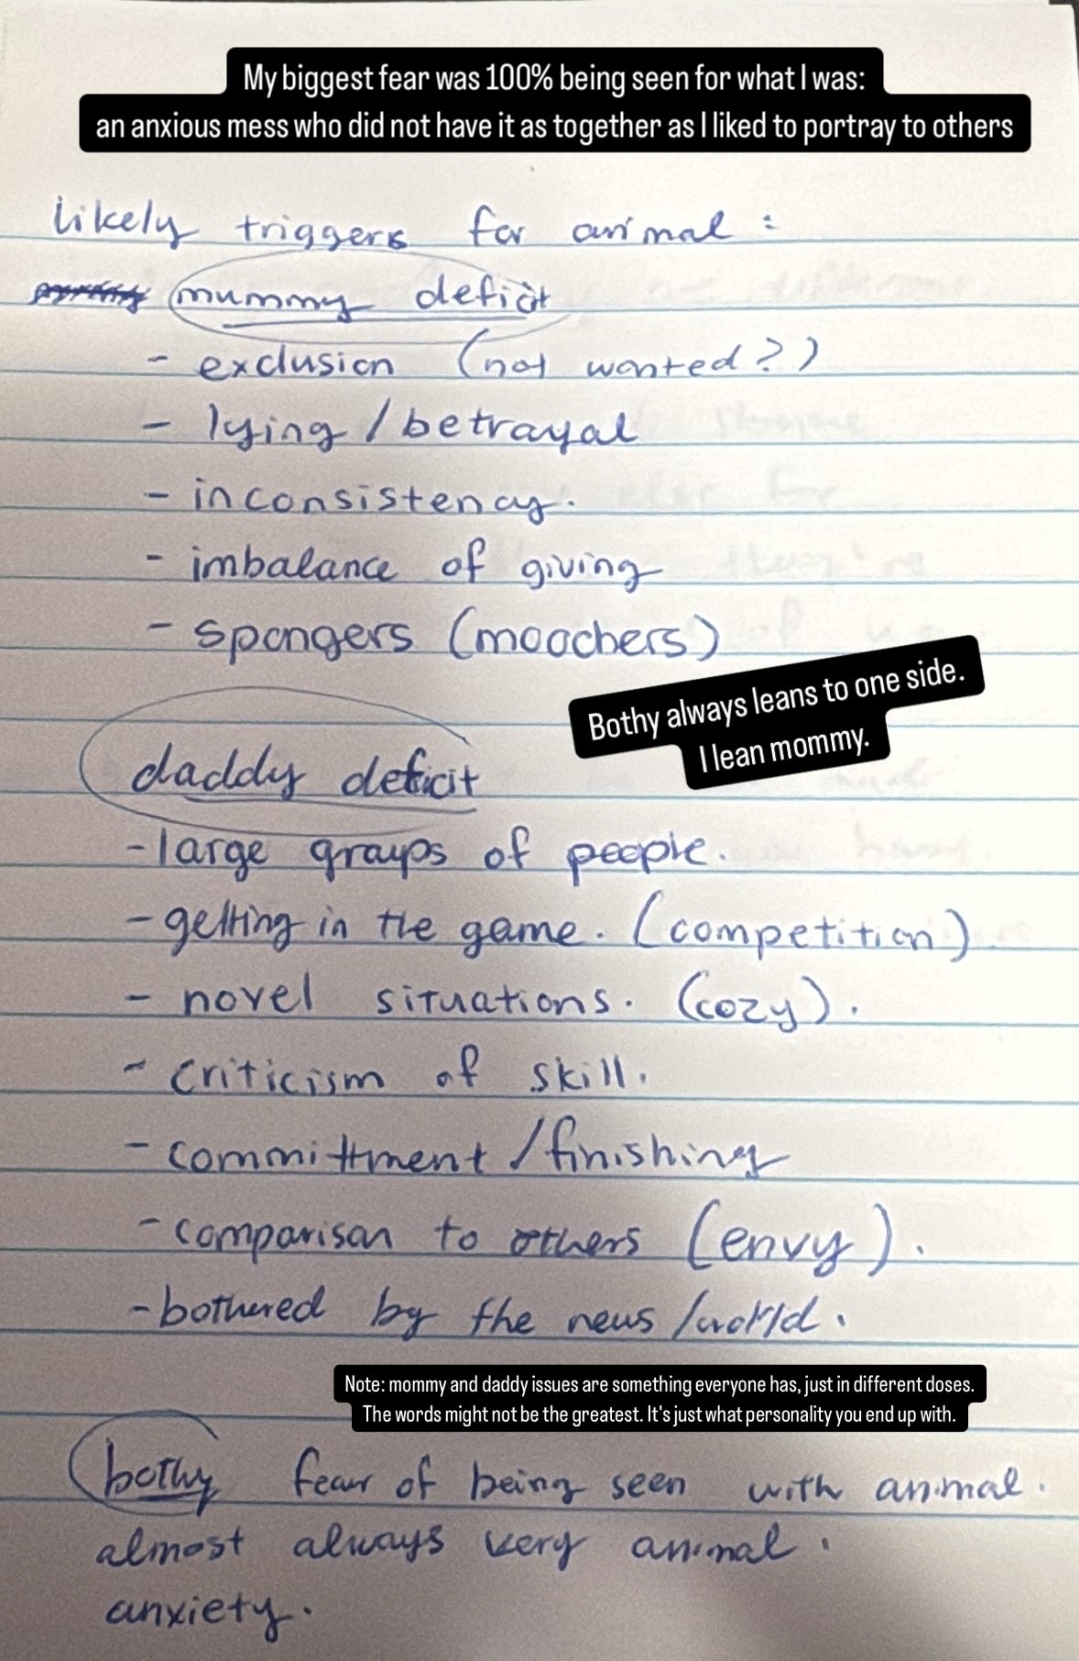 My biggest fear was 100% being seen for what I was:
an anxious mess who did not have it as together as I liked to portray to others
likely triggers for animal :
mummy deficit
- exclusion (not wanted?)
- lying / betrayal
- inconsistency.
- imbalance of giving
- spongers (moochers)
Bothy always leans to one side.
I lean mommy.
daddy deficit
- large groups of people.
- getting in the game. (competition).
- novel situations. (cozy).
- criticism of skill.
- committment / finishing
- comparison to others (envy).
- bothered by the news / world.
Note: mommy and daddy issues are something everyone has, just in different doses.
The words might not be the greatest. It's just what personality you end up with.
bothy fear of being seen with animal.
almost always very animal.
anxiety.